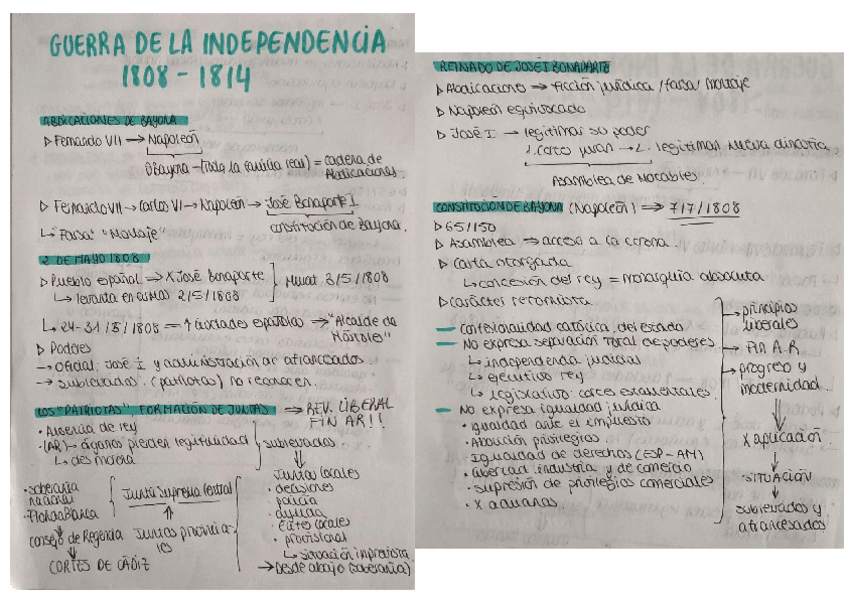 GUERRA DE LA INDEPENDENCIA
1808 - 1814
ABDICACIONES DE BAYONA
▷ Fernando VII → Napoleón
Bayona → (toda la familia real) = cadena de
Abdicaciones.
▷ Fernando VII → Carlos VI → Napoleón → José Bonaparte I
↳ "Farsa" "Montaje"
constitución de Bayona.
2 DE MAYO 1808
▷ Pueblo español → X José Bonaparte
↳ levanta en armas 2/5/1808
Murat 3/5/1808
↳ 24-31/5/1808 = ↑ ciudades españolas → "Alcalde de
Móstoles"
▷ Poderes
→ Oficial: José I y administración de afrancesados
→ sublevados. (patriotas) no reconocen.
LOS "PATRIOTAS". FORMACIÓN DE JUNTAS ⇒ REV. LIBERAL
FIN AR!!
• Ausencia de rey
• (AR) → órganos pierden legitimidad
↳ desmorona
sublevados
Juntas locales
• decisiones
policía
• dirigida
• élites locales
• provisional
↳ situación imprevista
→ Desde abajo (soberanía)
Junta Suprema Central
Juntas provincia-
les
• soberanía
nacional
• Floridablanca
consejo de Regencia
CORTES DE CÁDIZ
REINADO DE JOSÉ I BONAPARTE
▷ Abdicaciones → Ficción jurídica / farsa / montaje
▷ Napoleón equivocado
▷ José I → legitimar su poder
1. carta → 2. legitimar nueva dinastía
Asamblea de Notables.
CONSTITUCIÓN DE BAYONA (Napoleón) → 7/7/1808
▷ 65/150
▷ Asamblea → acceso a la corona.
▷ Carta otorgada
↳ concesión del rey = monarquía absoluta
▷ carácter reformista
— confesionalidad católica del estado
— No expresa separación total de poderes
↳ independencia judicial
↳ ejecutivo rey
↳ Legislativo: cortes estamentales
— No expresa igualdad jurídica
• igualdad ante el impuesto
• Abolición privilegios
• Igualdad de derechos (ESP-AM)
• Libertad industria y de comercio
• supresión de privilegios comerciales
• X aduanas
→ principios
liberales
→ FIN A.R
→ progreso y
modernidad
X aplicación
SITUACIÓN
sublevados y
afrancesados